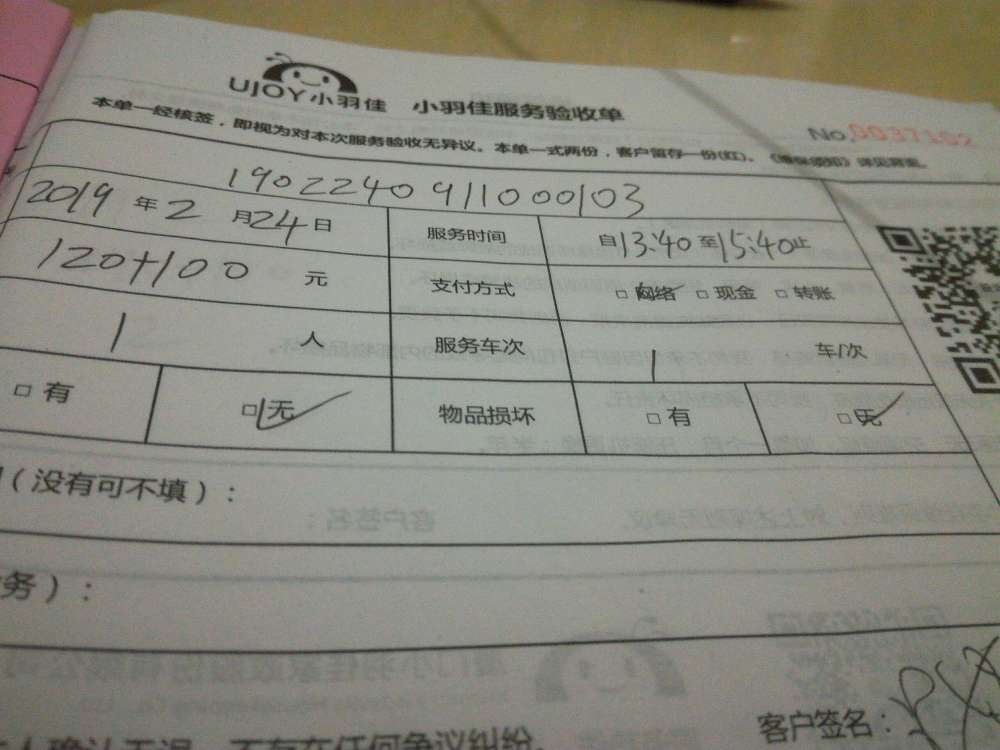 UJOY小羽佳 小羽佳服务验收单
No.0037102
本单一经核签，即视为对本次服务验收无异议。本单一式两份，客户留存一份(红)。
19022409110000103
2019 年 2 月 24 日 服务时间 自 13:40 至 15:40 止
120+100 元 支付方式 □ 网络 □ 现金 □ 转账
1 人 服务车次 1 车/次
□ 有 □ 无 物品损坏 □ 有 □ 无
（没有可不填）：
务）：
客户签名：
人确认无误，不存在任何争议纠纷。